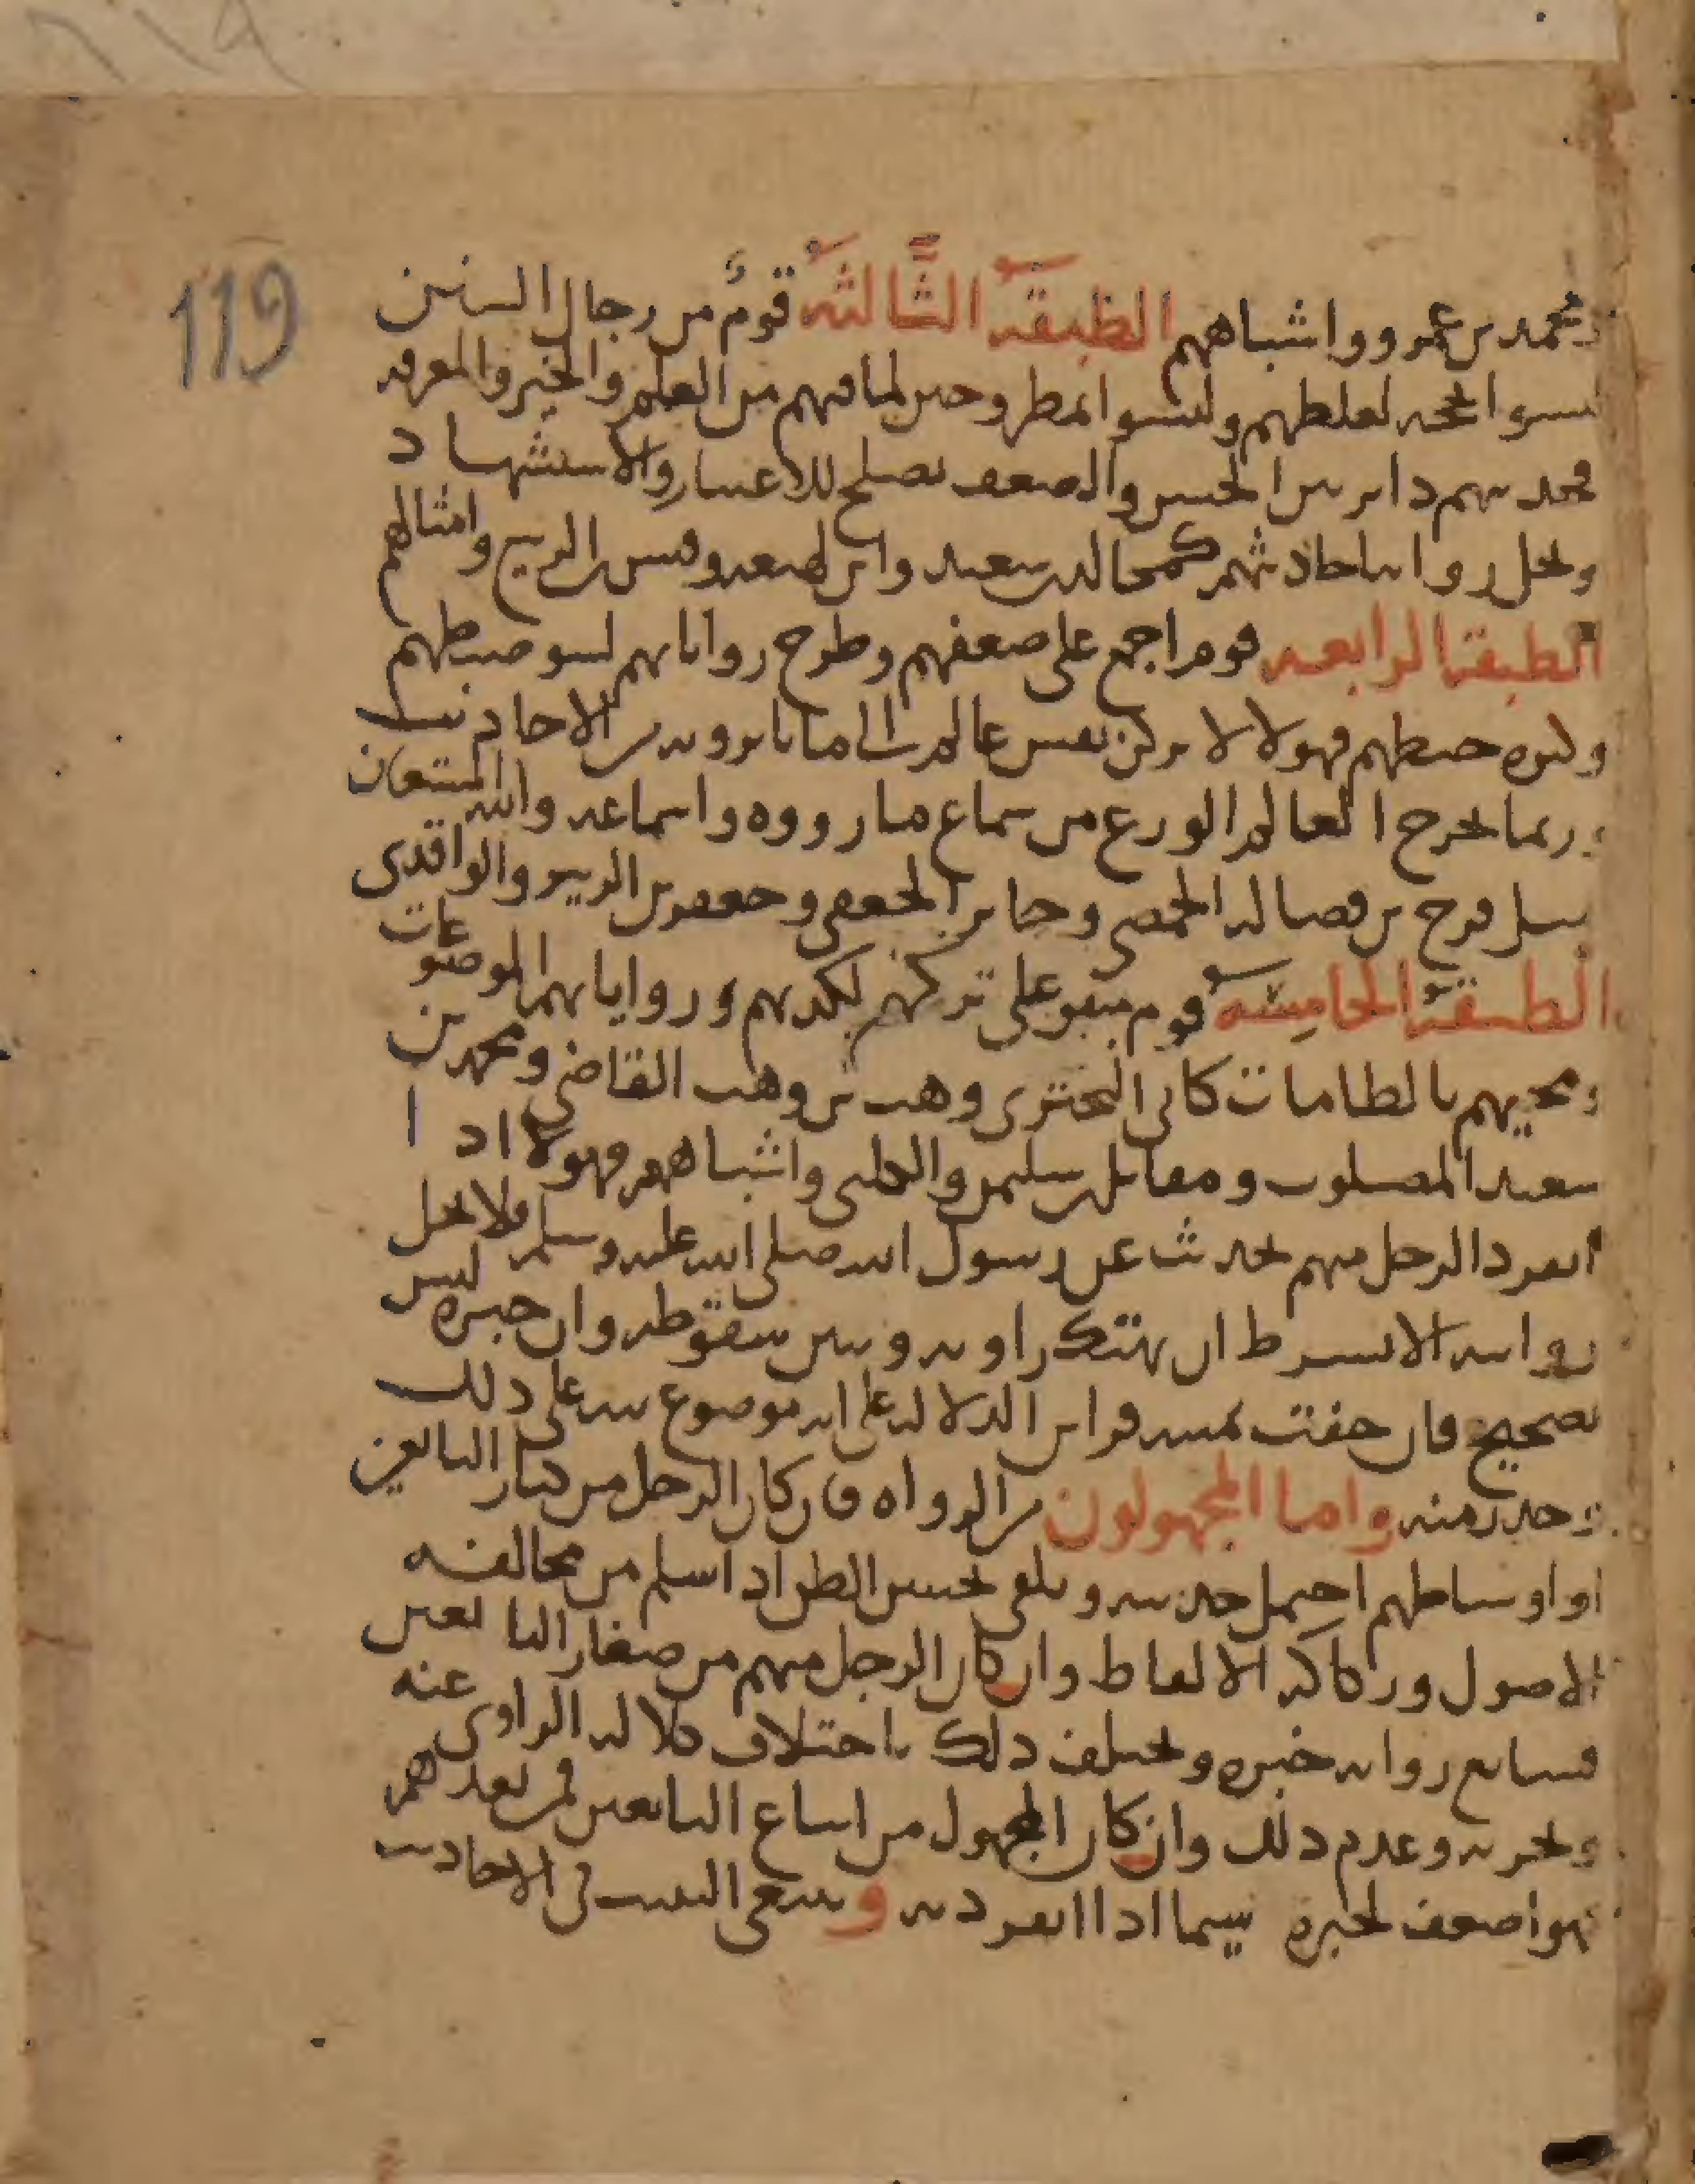 119
ومحمد بن عمرو واشباههم الطبقة الثَّالثة قومٌ من رجال السنن
ليسوا بحجه لغلطهم وليسوا بمطروحين لما فيهم من العلم والخير والمعرفه
فحديثهم داير بين الحسن والضعف يصلح للاعتبار والاستشهاد
ويحل روايه احاديثهم كمجالد بن سعيد وابن لهيعه وقيس بن الربيع وامثالهم
الطبقة الرابعه قوم اجمع على ضعفهم وطرح رواياتهم لسو ضبطهم
وكثره خبطهم فهولا لا يركن نفس عالم الى ما يروونه من الاحاديث
وربما تحرج العالم الورع من سماع ما رووه واسماعه والله المستعان
مثل فرج بن فضاله الحمصي وجابر الجعفي وجعفر بن الزبير والواقدي
الطبقة الخامسه قوم متفق على تركهم لكذبهم وروايايهم الموضوعات
ومجيهم بالطامات كابي البختري وهب بن وهب القاضي ومحمد بن
سعيد المصلوب ومقاتل بن سليمن والكلبي واشباههم فهولا اذا
انفرد الرجل منهم بحديث عن رسول الله صلى الله عليه وسلم فلا يحل
روايته الا بشرط ان يهتك راويه ويبين سقوطه وان خبره ليس
بصحيح فان حفت بمتنه قراين الدلاله على انه موضوع نبه على ذلك
وحذر منه واما المجهولون من الرواه فان كان الرجل من كبار التابعين
او اوساطهم احتمل حديثه وتلقي بحسن الظن اذا سلم من مخالفه
الاصول وركاكه الالفاظ وان كان الرجل منهم من صغار التابعين
فسايغ روايه خبره ويختلف ذلك باختلاف جلاله الراوي عنه
وتحريه وعدم ذلك وان كان المجهول من اتباع التابعين فمن بعدهم
فهو اضعف لخبره سيما اذا انفرد به وينبغي التثبت في الاحاديث